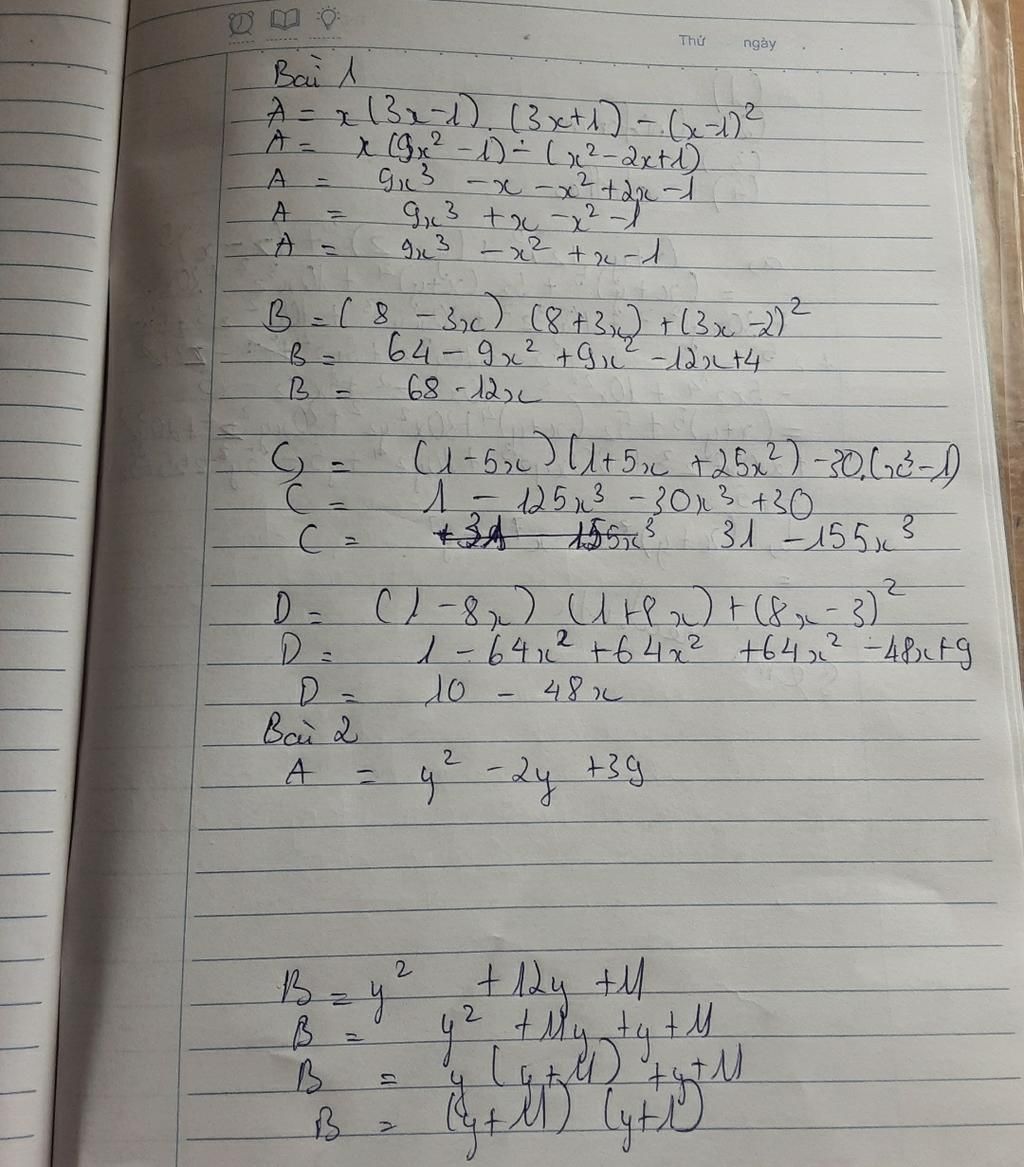 Thứ ngày
Bài 1
A = x(3x-1).(3x+1) - (x-1)²
A = x(9x² - 1) - (x² - 2x+1)
A = 9x³ - x - x² + 2x - 1
A = 9x³ + x - x² - 1
A = 9x³ - x² + x - 1
B = (8 - 3x) (8 + 3x) + (3x - 2)²
B = 64 - 9x² + 9x² - 12x + 4
B = 68 - 12x
C = (1 - 5x) (1 + 5x + 25x²) - 30.(x³ - 1)
C = 1 - 125x³ - 30x³ + 30
C = 31 - 155x³
D = (1 - 8x) (1 + 8x) + (8x - 3)²
D = 1 - 64x² + 64x² + 64x² - 48x + 9
D = 10 - 48x
Bài 2
A = y² - 2y + 39
B = y² + 12y + 11
B = y² + 11y + y + 11
B = y (y + 11) + y + 11
B = (y + 11) (y + 1)